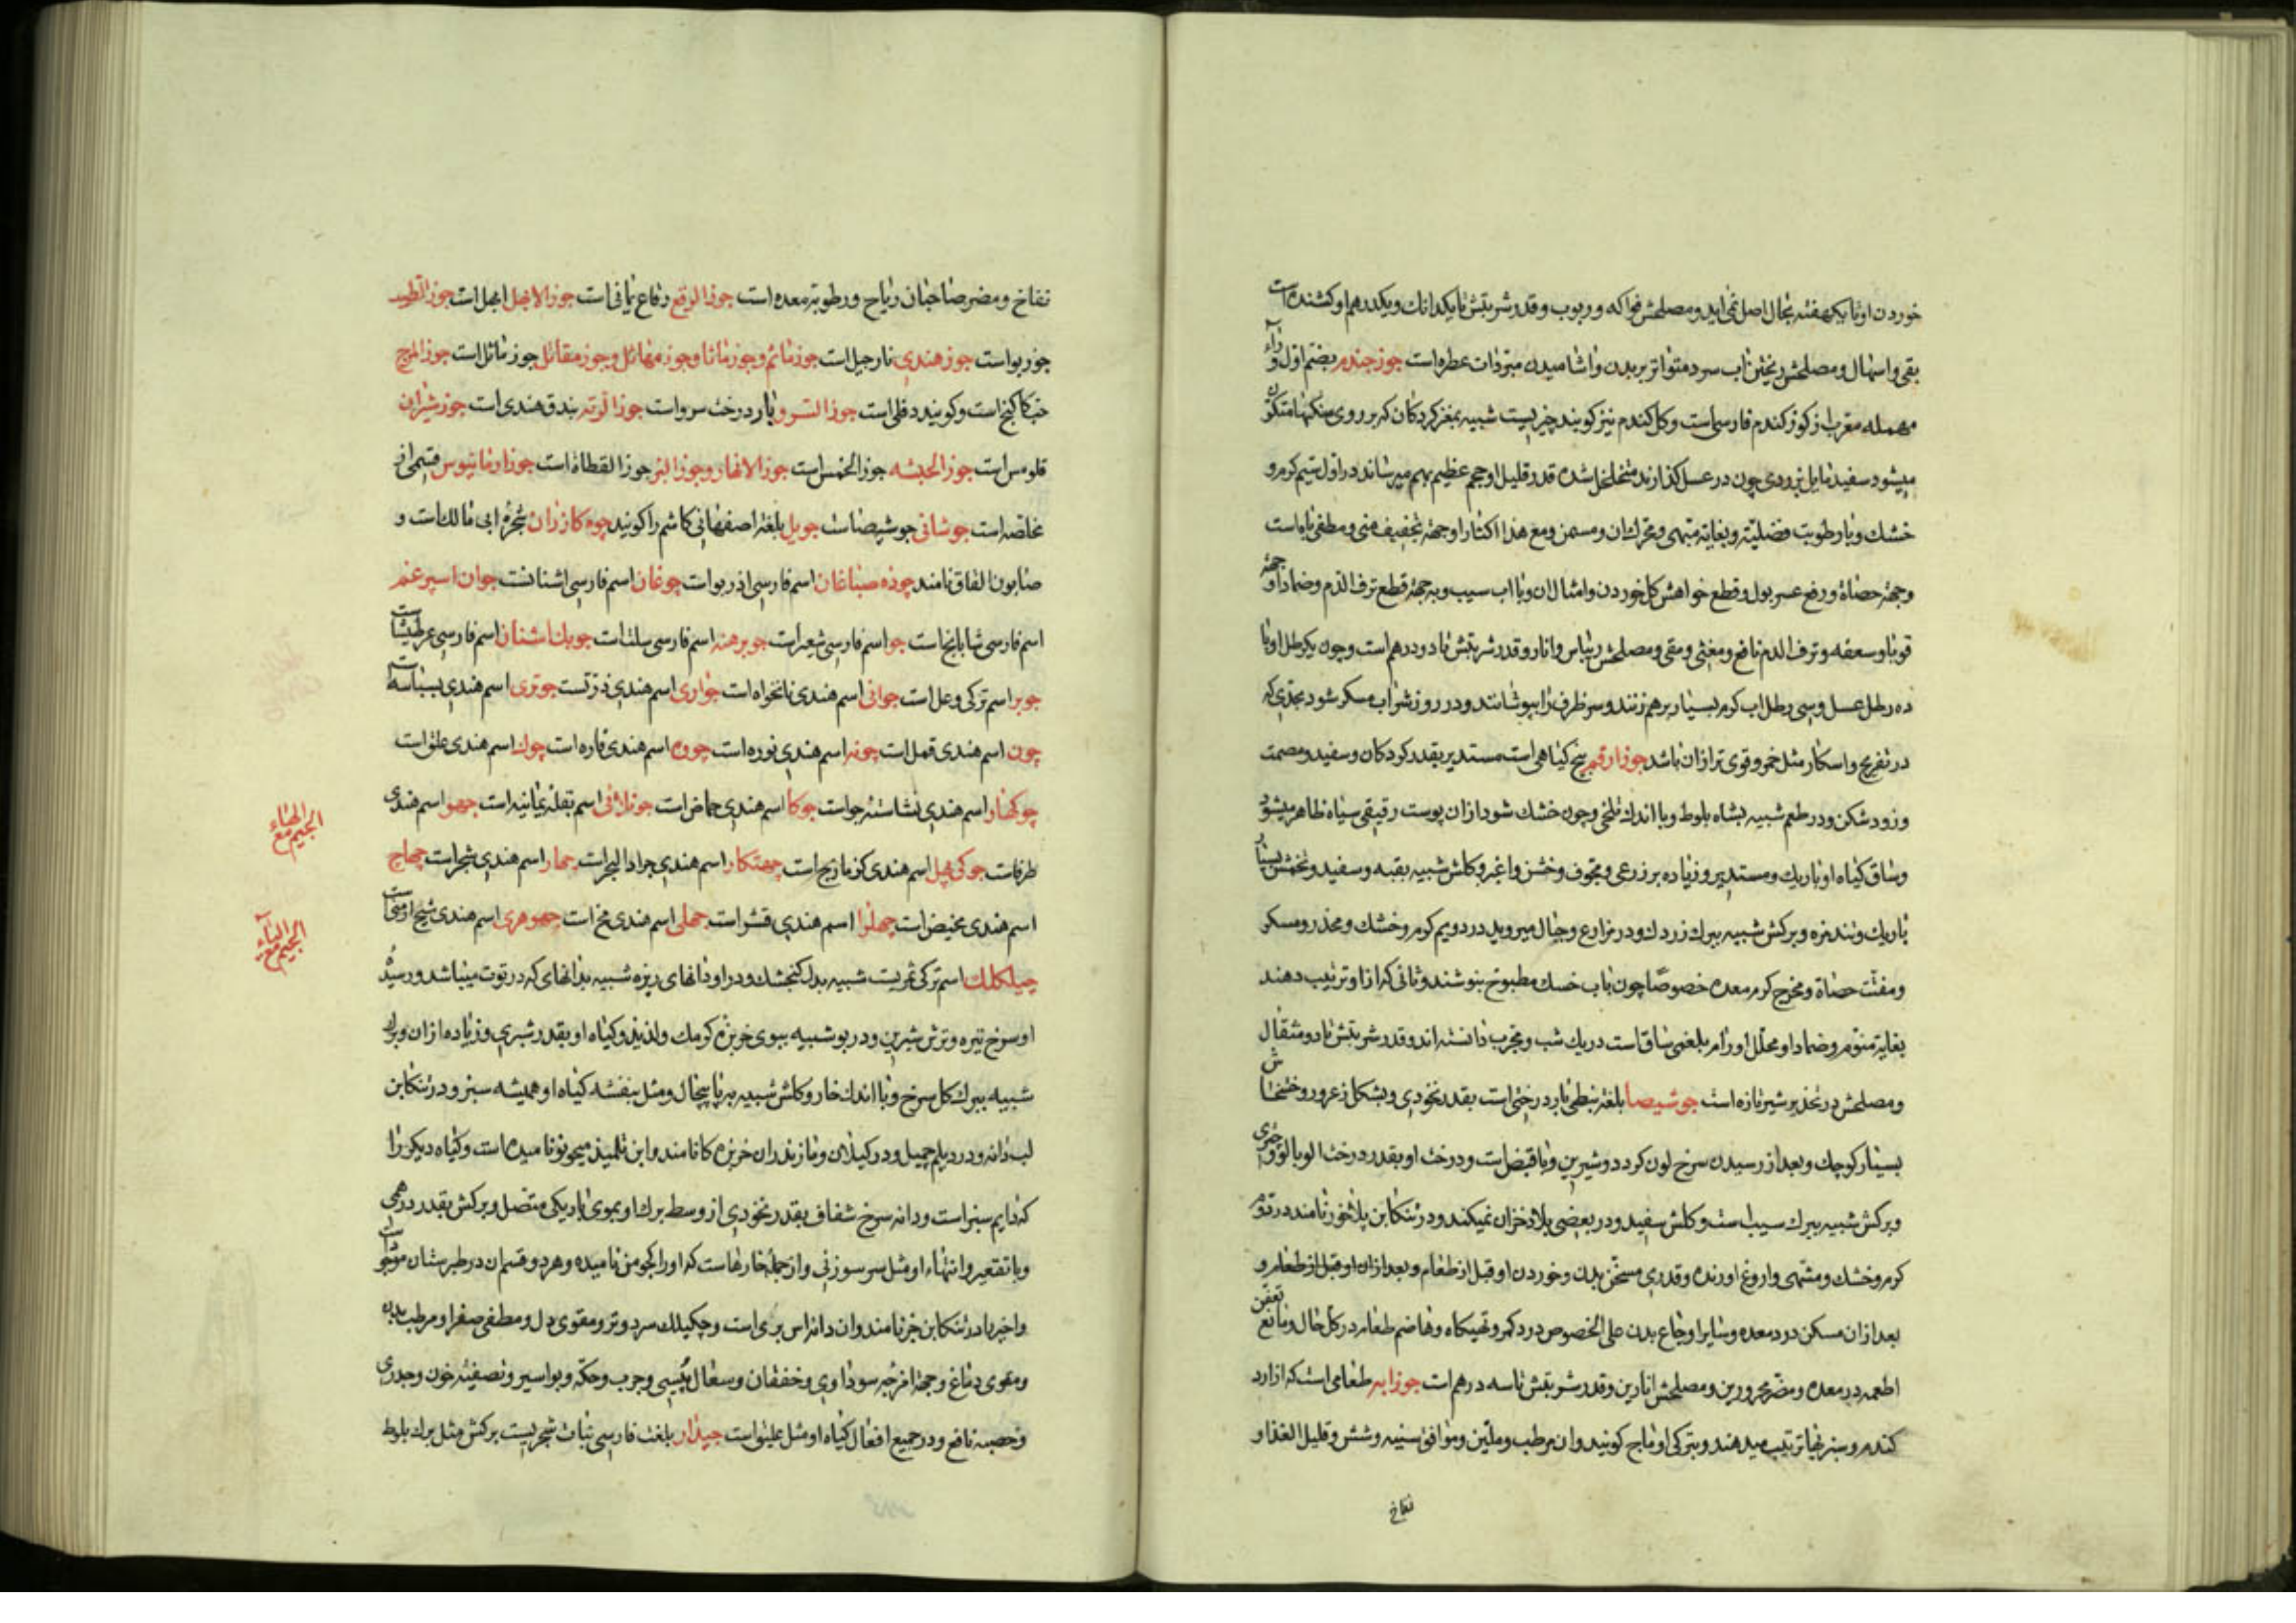 خوردن او تا یکهفته بحال اصل نمی اید و مصلحش فواکه و ربوب و قدر شربتش تا یکدانک و یکدرهم او کشنده است
بقی و اسهال و مصلحش ریختن اب سرد متواتر بر بدن و اشامیدن مبردات عطره است جوز جندم بضم اول و راء
مهمله معرب از کوز کندم فارسی است و کل کندم نیز کویند چیزیست شبیه بمغز کردکان که بر روی سنکها متکون
میشود سفید مایل بزردی چون در عسل کذارند متخلخل شده قدر قلیل او حجم عظیم بهم میرساند در اول سیم کرم و
خشک و با رطوبت فضلیه و بغایة مبهی و محرک ان و مسمن و مع هذا اکثار او جهة تجفیف منی و مطفی باه است
و جهة حصاة و رفع عسر بول و قطع خواهش کل خوردن و امثال ان و با اب سیب و به جهة قطع نزف الدم و ضماد او جهة
قوبا و سعفه و نزف الدم نافع و مغثی و مقی و مصلحش ریباس و انار و قدر شربتش تا دو درهم است و چون یکرطل او با
ده رطل عسل و سی رطل اب کرم بسیار برهم زنند و سر ظرف را بپوشانند در روز شراب مسکر شود بحدی که
در تفریح و اسکار مثل خمر و قوی تر از ان باشد جوز ارقم بیخ کیاهی است مستدیر بقدر کردکان و سفید و مصمت
و زود شکن و در طعم شبیه بشاه بلوط و با اندک تلخی و چون خشک شود از ان پوست رقیقی سیاه ظاهر میشود
و ساق کیاه او باریک و مستدیر و زیاده بر ذرعی و مجوف و خشن و اغبر و کلش شبیه بقبه و سفید و تخمش بسیار
باریک و تند مزه و برکش شبیه ببرک زردک و در مزارع و جبال میروید در دویم کرم و خشک و مخدر و مسکر
و مفتت حصاة و مخرج کرم معده خصوصا چون باب خسک مطبوخ بنوشند و نانی که از او ترتیب دهند
بغایة منوم و ضماد او محلل اورام بلغمی ساقاست در یک شب و مجرب دانسته اند و قدر شربتش تا دو مثقال
و مصلحش در تخدیر شیر تازه است جوشیصا بلغة نبطی بار درختی است بقدر نخودی و بشکل زعرور و خشخاش
بسیار کوچک و بعد از رسیدن سرخ لون کردد و شیرین و با قبض است و درخت او بقدر درخت الوبالو و
و برکش شبیه ببرک سیب است و کلش سفید و در بعضی بلاد خزان نمیکند و در تنکابن نامند در دوم
کرم و خشک و مشتهی و اروغ اورنده و قدری مسخن بدن و خوردن او قبل از طعام و بعد از ان او قبل از طعام و
بعد از ان مسکن درد معده و سایر اوجاع بدن علی الخصوص درد کمر و تهیکاه و هاضم طعام در کل حال و مانع تعفن
اطعمه در معده و مضر محرورین و مصلحش انارین و قدر شربتش تا سه درهم است جوزابه طعامی است که از ارد
کندم و سبزیها ترتیب میدهند و بترکی اوماج کویند و ان مرطب و ملین و موافق سینه و شش و قلیل الغذا و
نفاخ
نفاخ و مضر صاحبان ریاح و رطوبة معده است جوز الرقع رقاع یمانی است جوز الابهل ابهل است جوز الطیب
جوز بواست جوز هندی نارجیل است جوز ماثم و جوز ماثا و جوز مهاثل و جوز مقاتل جوز ماثل است جوز المرج
حب کاکنج است و کویند دفلی است جوز السرو بار درخت سرو است جوز الرته بندق هندی است جوز شیران
قلومس است جوز الحبشه جوز الخمس است جوز الانهار و جوز النهر جوز القطاة است جوز ارمانیوس قسمی از
مخلصه است جوشانی جوشیصا است جویل بلغة اصفهانی کاشم را کویند چوه کازران شجره ابی مالک است و
صابون القاق نامند چوزه صباغان اسم فارسی اذریو است چوغان اسم فارسی اشنان است جوان اسپرغم
اسم فارسی شابابخ است جو اسم فارسی شعیر است جو برهنه اسم فارسی سلت است چوبک اشنان اسم فارسی عرطنیثا است
جوبر اسم ترکی وعل است جوانی اسم هندی نانخواه است جواری اسم هندی ذرتست جوتری اسم هندی بسباسه است
چون اسم هندی قمل است چونه اسم هندی نوره است چوه اسم هندی فاره است چوک اسم هندی علق است
جوکهار اسم هندی نشاسته جو است چوکا اسم هندی حماض است اسم بقله یمانیه است جهو اسم هندی
طرفاست جوکی پهل اسم هندی کزمازج است جهنکار اسم هندی جراد البحر است جهار اسم هندی شجر است چهاج
اسم هندی مخیض است چهلرا اسم هندی قشر است جهلی اسم هندی مخ است جهوهری اسم هندی شیح ارمنی است
چیلکلک اسم ترکی ثمریست شبیه بدل کنجشک و در او دانهای ریزه شبیه بدانهای که در توت میباشد و رسیده
او سرخ تیره و ترش شیرین و در بو شبیه ببوی خربزه کرمک و لذیذ و کیاه او بقدر شبری و زیاده از ان و برک
شبیه ببرک کل سرخ و با اندک خار و کلش شبیه و مثل بنفشه کیاه او همیشه سبز و در تنکابن
لب دانه و در دیلم چیل و در کیلان و مازندران خربزه کا نامند و ابن تلمیذ میحونو نامیده است و کیاه دیکر را
که دایم سبز است و دانه سرخ شفاف بقدر نخودی از وسط برک او بموی باریکی متصل و برکش بقدر درهمی
و با تقعیر و انتهاء او مثل سر سوزنی و از جمله خارهاست که او را نامیده و هر دو قسم ان در طبرستان موجود است
و اخیر را در تنکابن نامند و ان دانه اس بری است و چیکیلک سرد و تر و مقوی دل و مطفی صفرا و مرطب بدن
و مقوی دماغ و جهة امزجه سوداوی و خفقان و سعال یبسی و جرب و حکه و بواسیر و تصفیه خون و جدری
و حصبه نافع و در جمیع افعال کیاه او مثل علیق است جیدار بلغت فارسی نبات شجریست برکش مثل برک بلوط
الجیم مع الهاء
الجیم مع الیاء